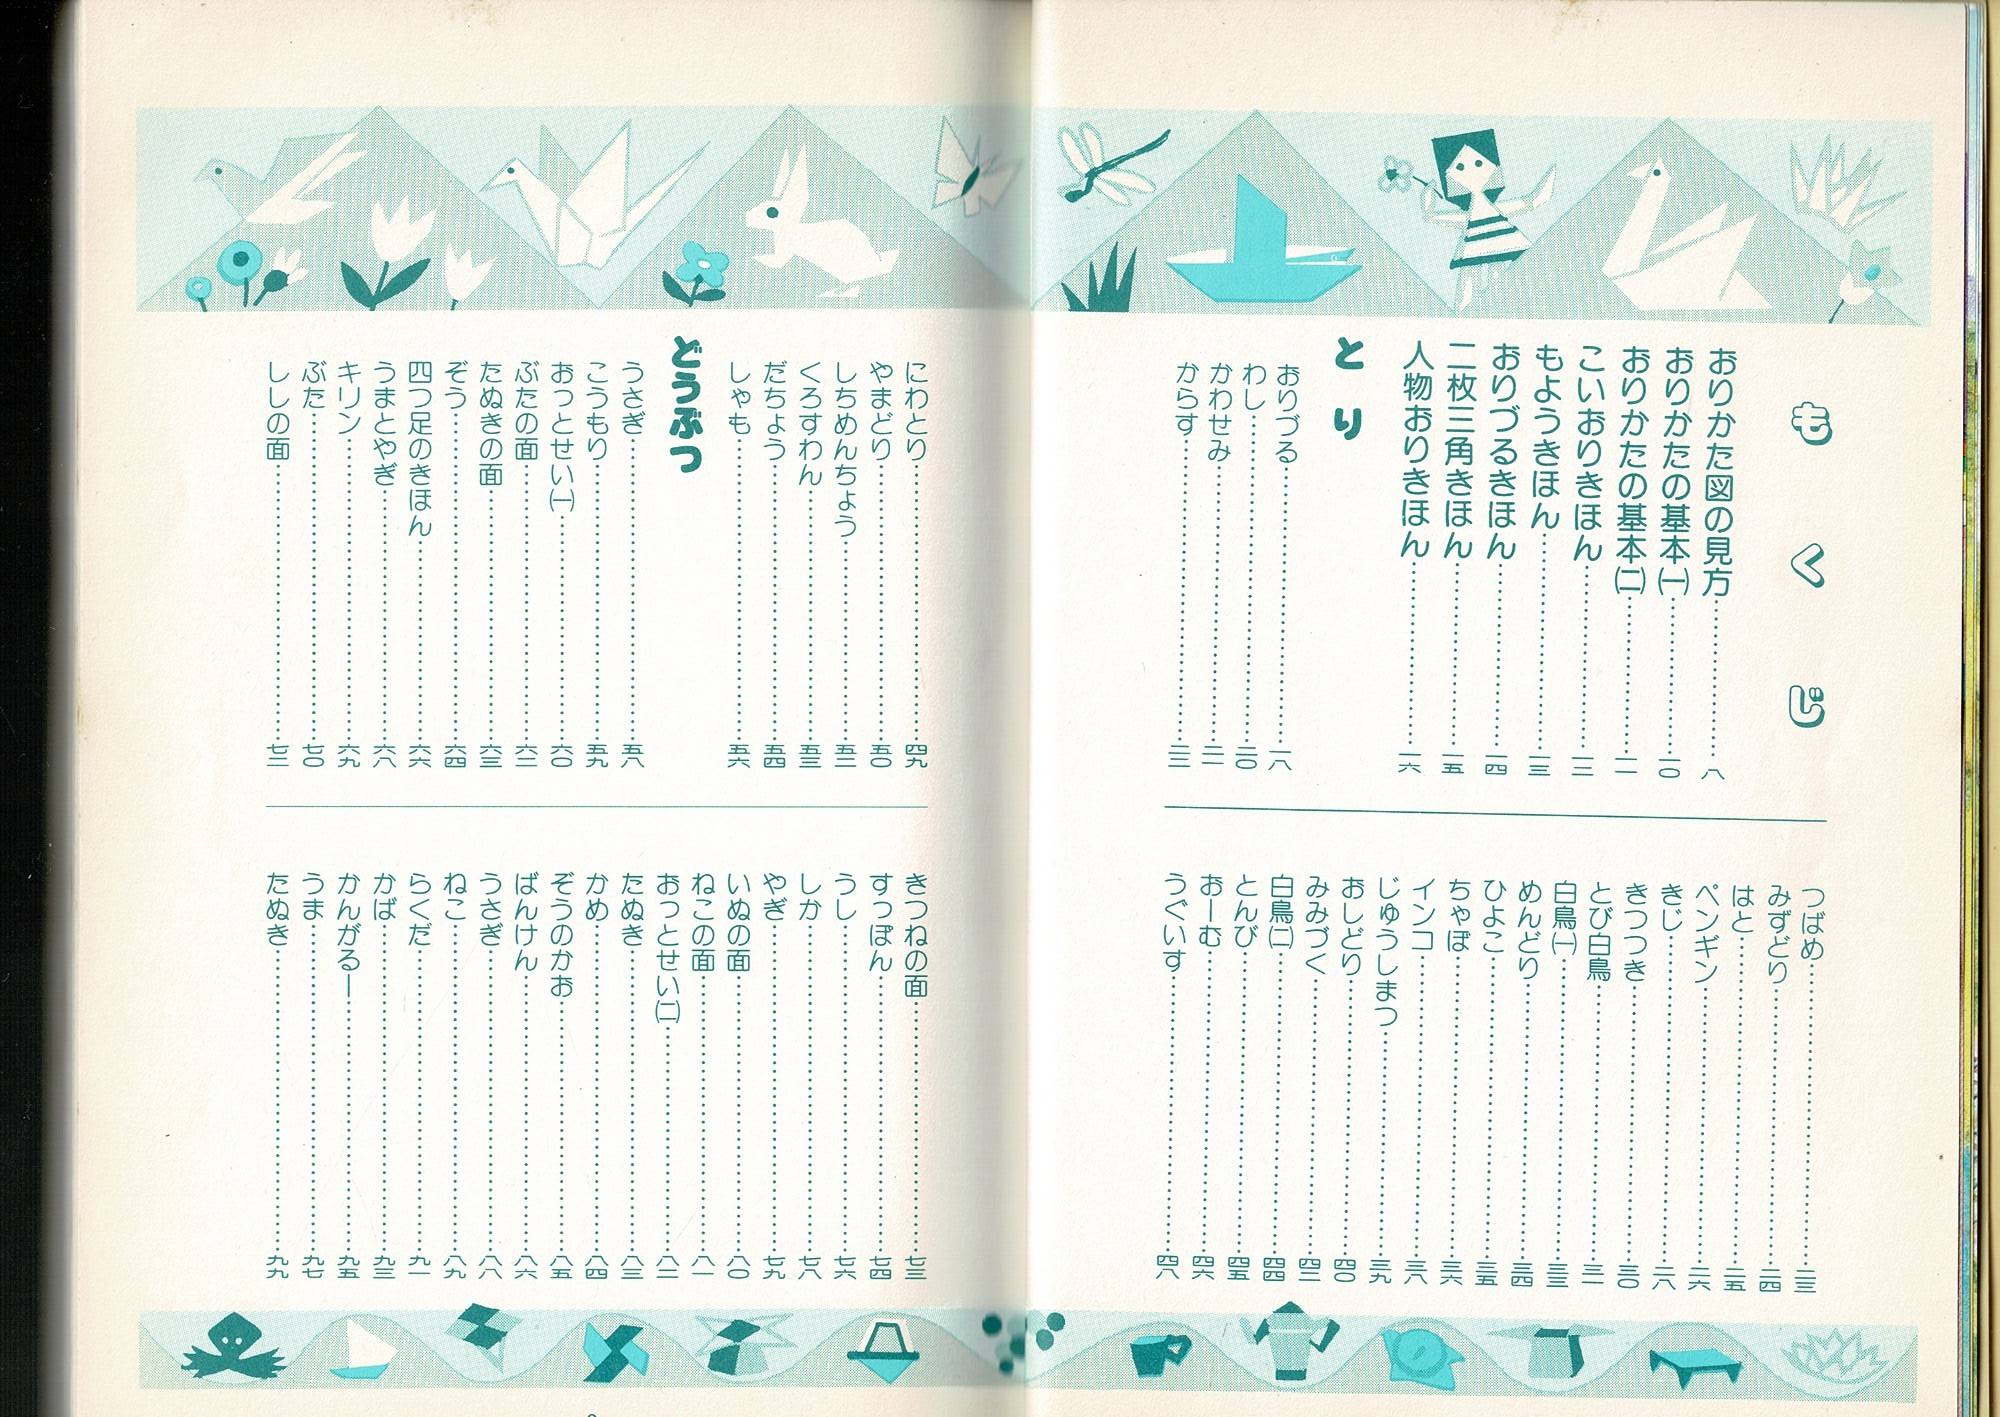 もくじ
おりかた図の見方……八
おりかたの基本(一)……一〇
おりかたの基本(二)……一一
こいおりきほん……一二
もようきほん……一三
おりづるきほん……一四
二枚三角きほん……一五
人物おりきほん……一六
とり
おりづる……一八
わし……二〇
かわせみ……二一
からす……二二
つばめ……二三
みずどり……二四
はと……二五
ペンギン……二六
きじ……二八
きつつき……三〇
とび白鳥……三一
白鳥(一)……三三
めんどり……三四
ひよこ……三五
ちゃぼ……三六
インコ……三八
じゅうしまつ……三九
おしどり……四〇
みみづく……四二
白鳥(二)……四四
とんび……四五
おーむ……四六
うぐいす……四八
にわとり……四九
やまどり……五〇
しちめんちょう……五二
くろすわん……五三
だちょう……五四
しゃも……五六
どうぶつ
うさぎ……五八
こうもり……五九
おっとせい(一)……六〇
ぶたの面……六二
たぬきの面……六三
ぞう……六四
四つ足のきほん……六六
うまとやぎ……六八
キリン……六九
ぶた……七〇
ししの面……七二
きつねの面……七三
すっぽん……七四
うし……七六
しか……七八
やぎ……七九
いぬの面……八〇
ねこの面……八一
おっとせい(二)……八二
たぬき……八三
かめ……八四
ぞうのかお……八五
ばんけん……八六
うさぎ……八八
ねこ……八九
らくだ……九一
かば……九三
かんがるー……九五
うま……九七
たぬき……九九